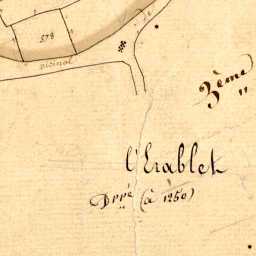 578
vicinal
3ème
"
l'Erablet
Dppé (à 1250)